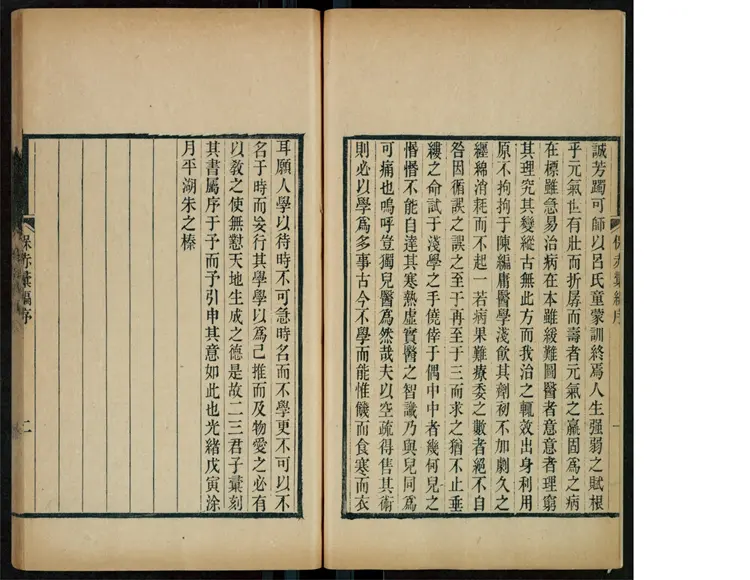 誠芳躅可師以呂氏童蒙訓終焉人生强弱之賦根
乎元氣世有壯而折孱而壽者元氣之羸固爲之病
在標雖急易治病在本雖緩難圖醫者意意者理窮
其理究其變縱古無此方而我治之輒效出身利用
原不拘拘于陳編庸醫學淺飲其劑初不加劇久之
纏綿消耗而不起一若病果難療委之數者絕不自
咎因循誤之誤之至于再至于三而求之猶不止垂
縷之命試于淺學之手僥倖于偶中中者幾何兒之
惛惛不能自達其寒熱虛實醫之智識乃與兒同爲
可痛也嗚呼豈獨兒醫爲然哉夫以空疏得售其術
則必以學爲多事古今不學而能惟饑而食寒而衣
保赤彙編序
一
耳願人學以待時不可急時名而不學更不可以不
名于時而妄行其學學以爲己推而及物愛之必有
以教之使無懟天地生成之德是故二三君子彙刻
其書屬序于予而予引申其意如此也光緒戊寅涂
月平湖朱之榛
保赤彙編序
二